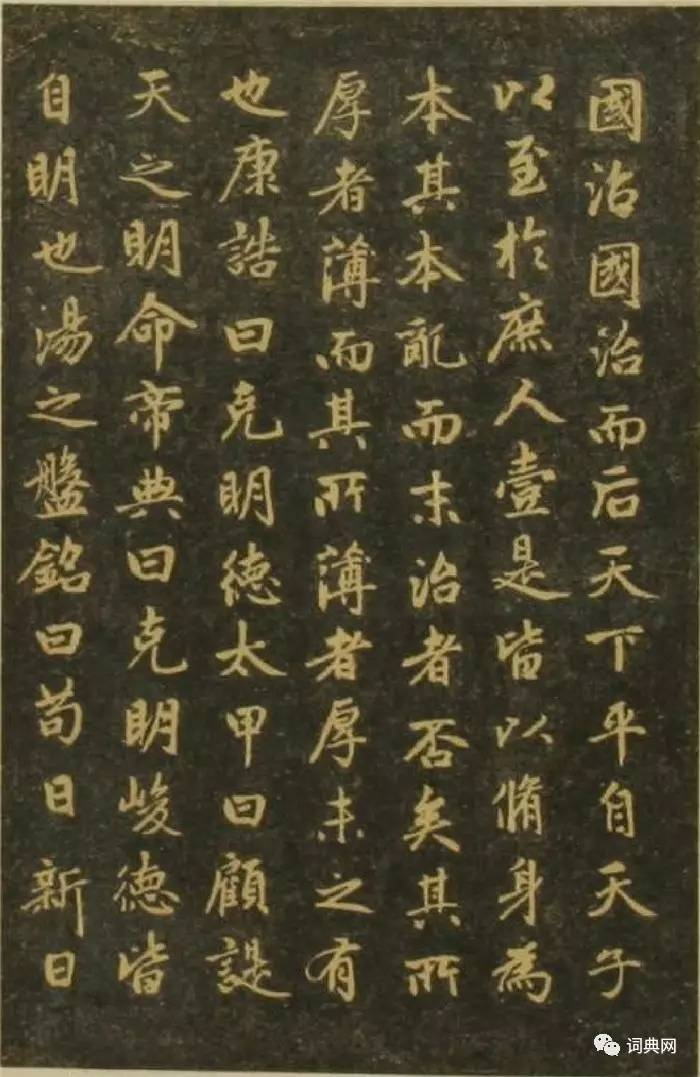 國治國治而后天下平自天子
以至於庶人壹是皆以脩身為
本其本亂而末治者否矣其所
厚者薄而其所薄者厚未之有
也康誥曰克明德太甲曰顧諟
天之明命帝典曰克明峻德皆
自明也湯之盤銘曰茍日新日
词典网